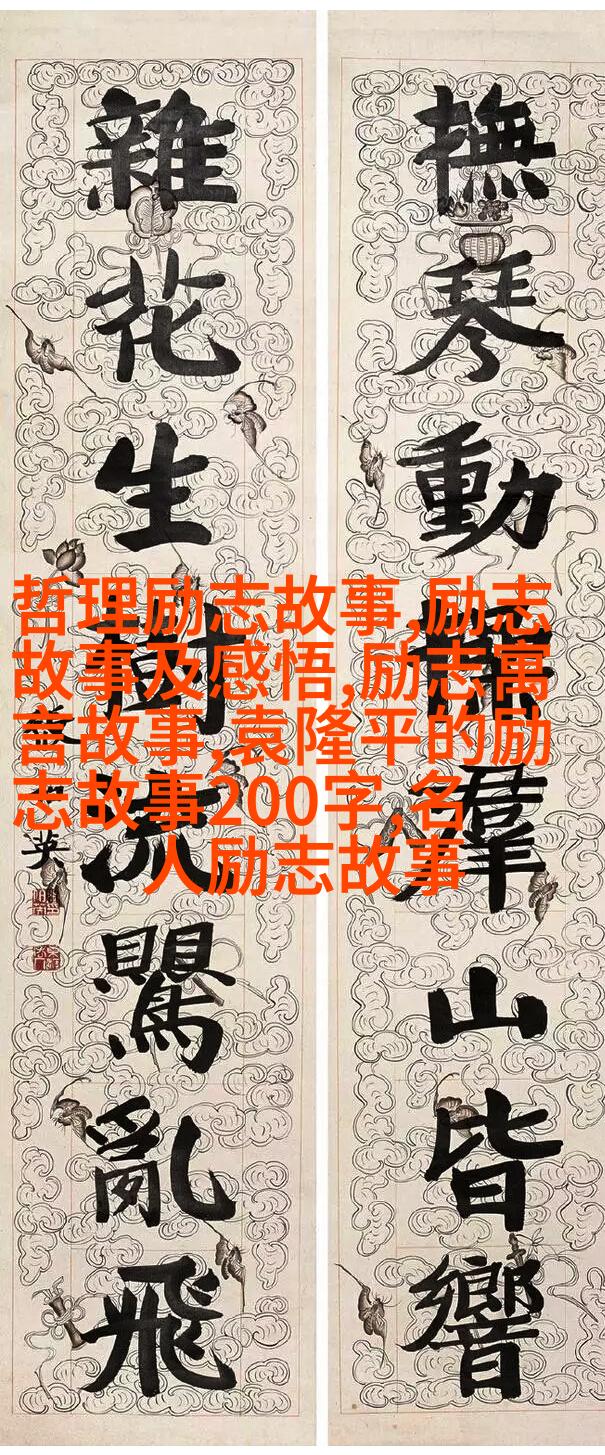 撫琴動操羣山皆響
雜花生樹流鸎亂飛
英
哲理励志故事,励志
故事及感悟,励志寓
言故事,袁隆平的励
志故事200字,名
人励志故事